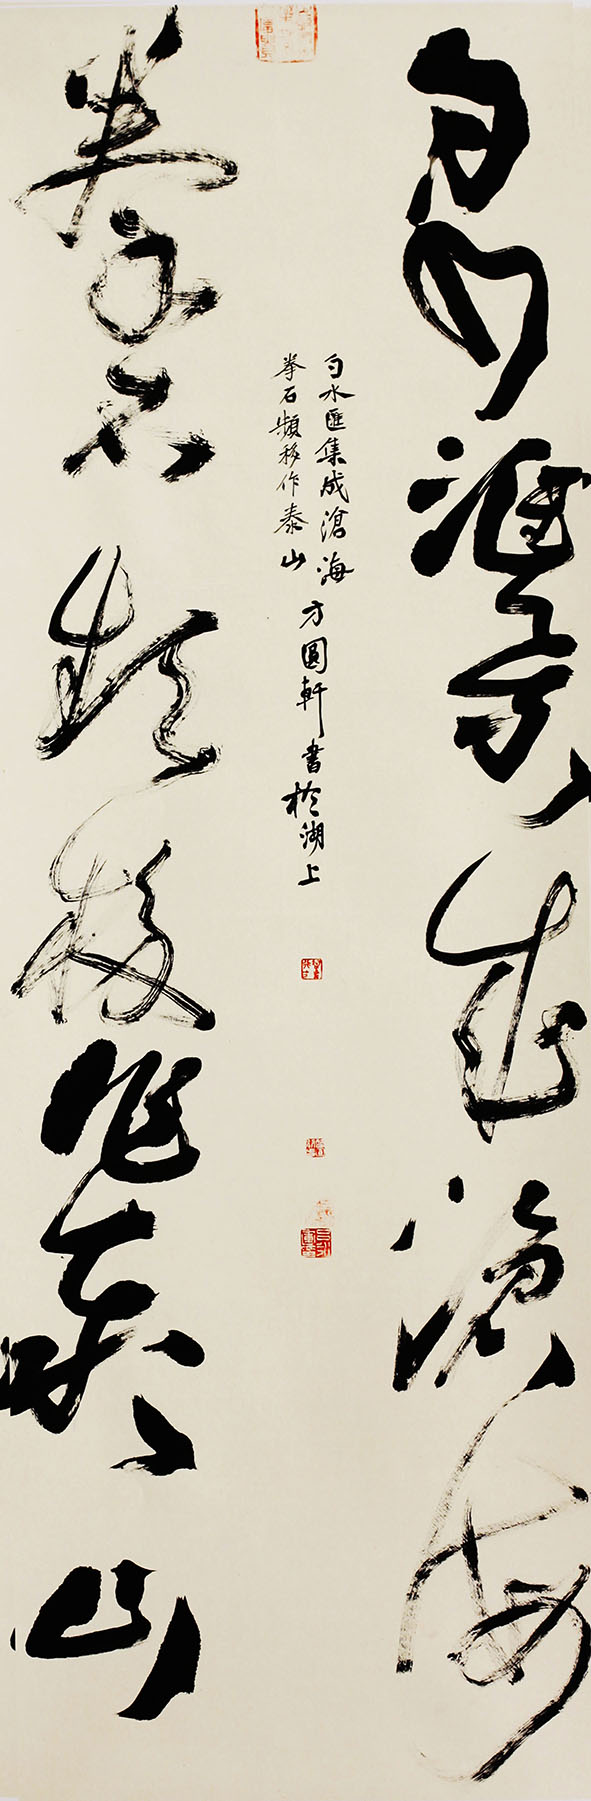 勺水匯集成滄海
拳石頻移作泰山
勺水匯集成滄海
拳石頻移作泰山
方圓軒書於湖上